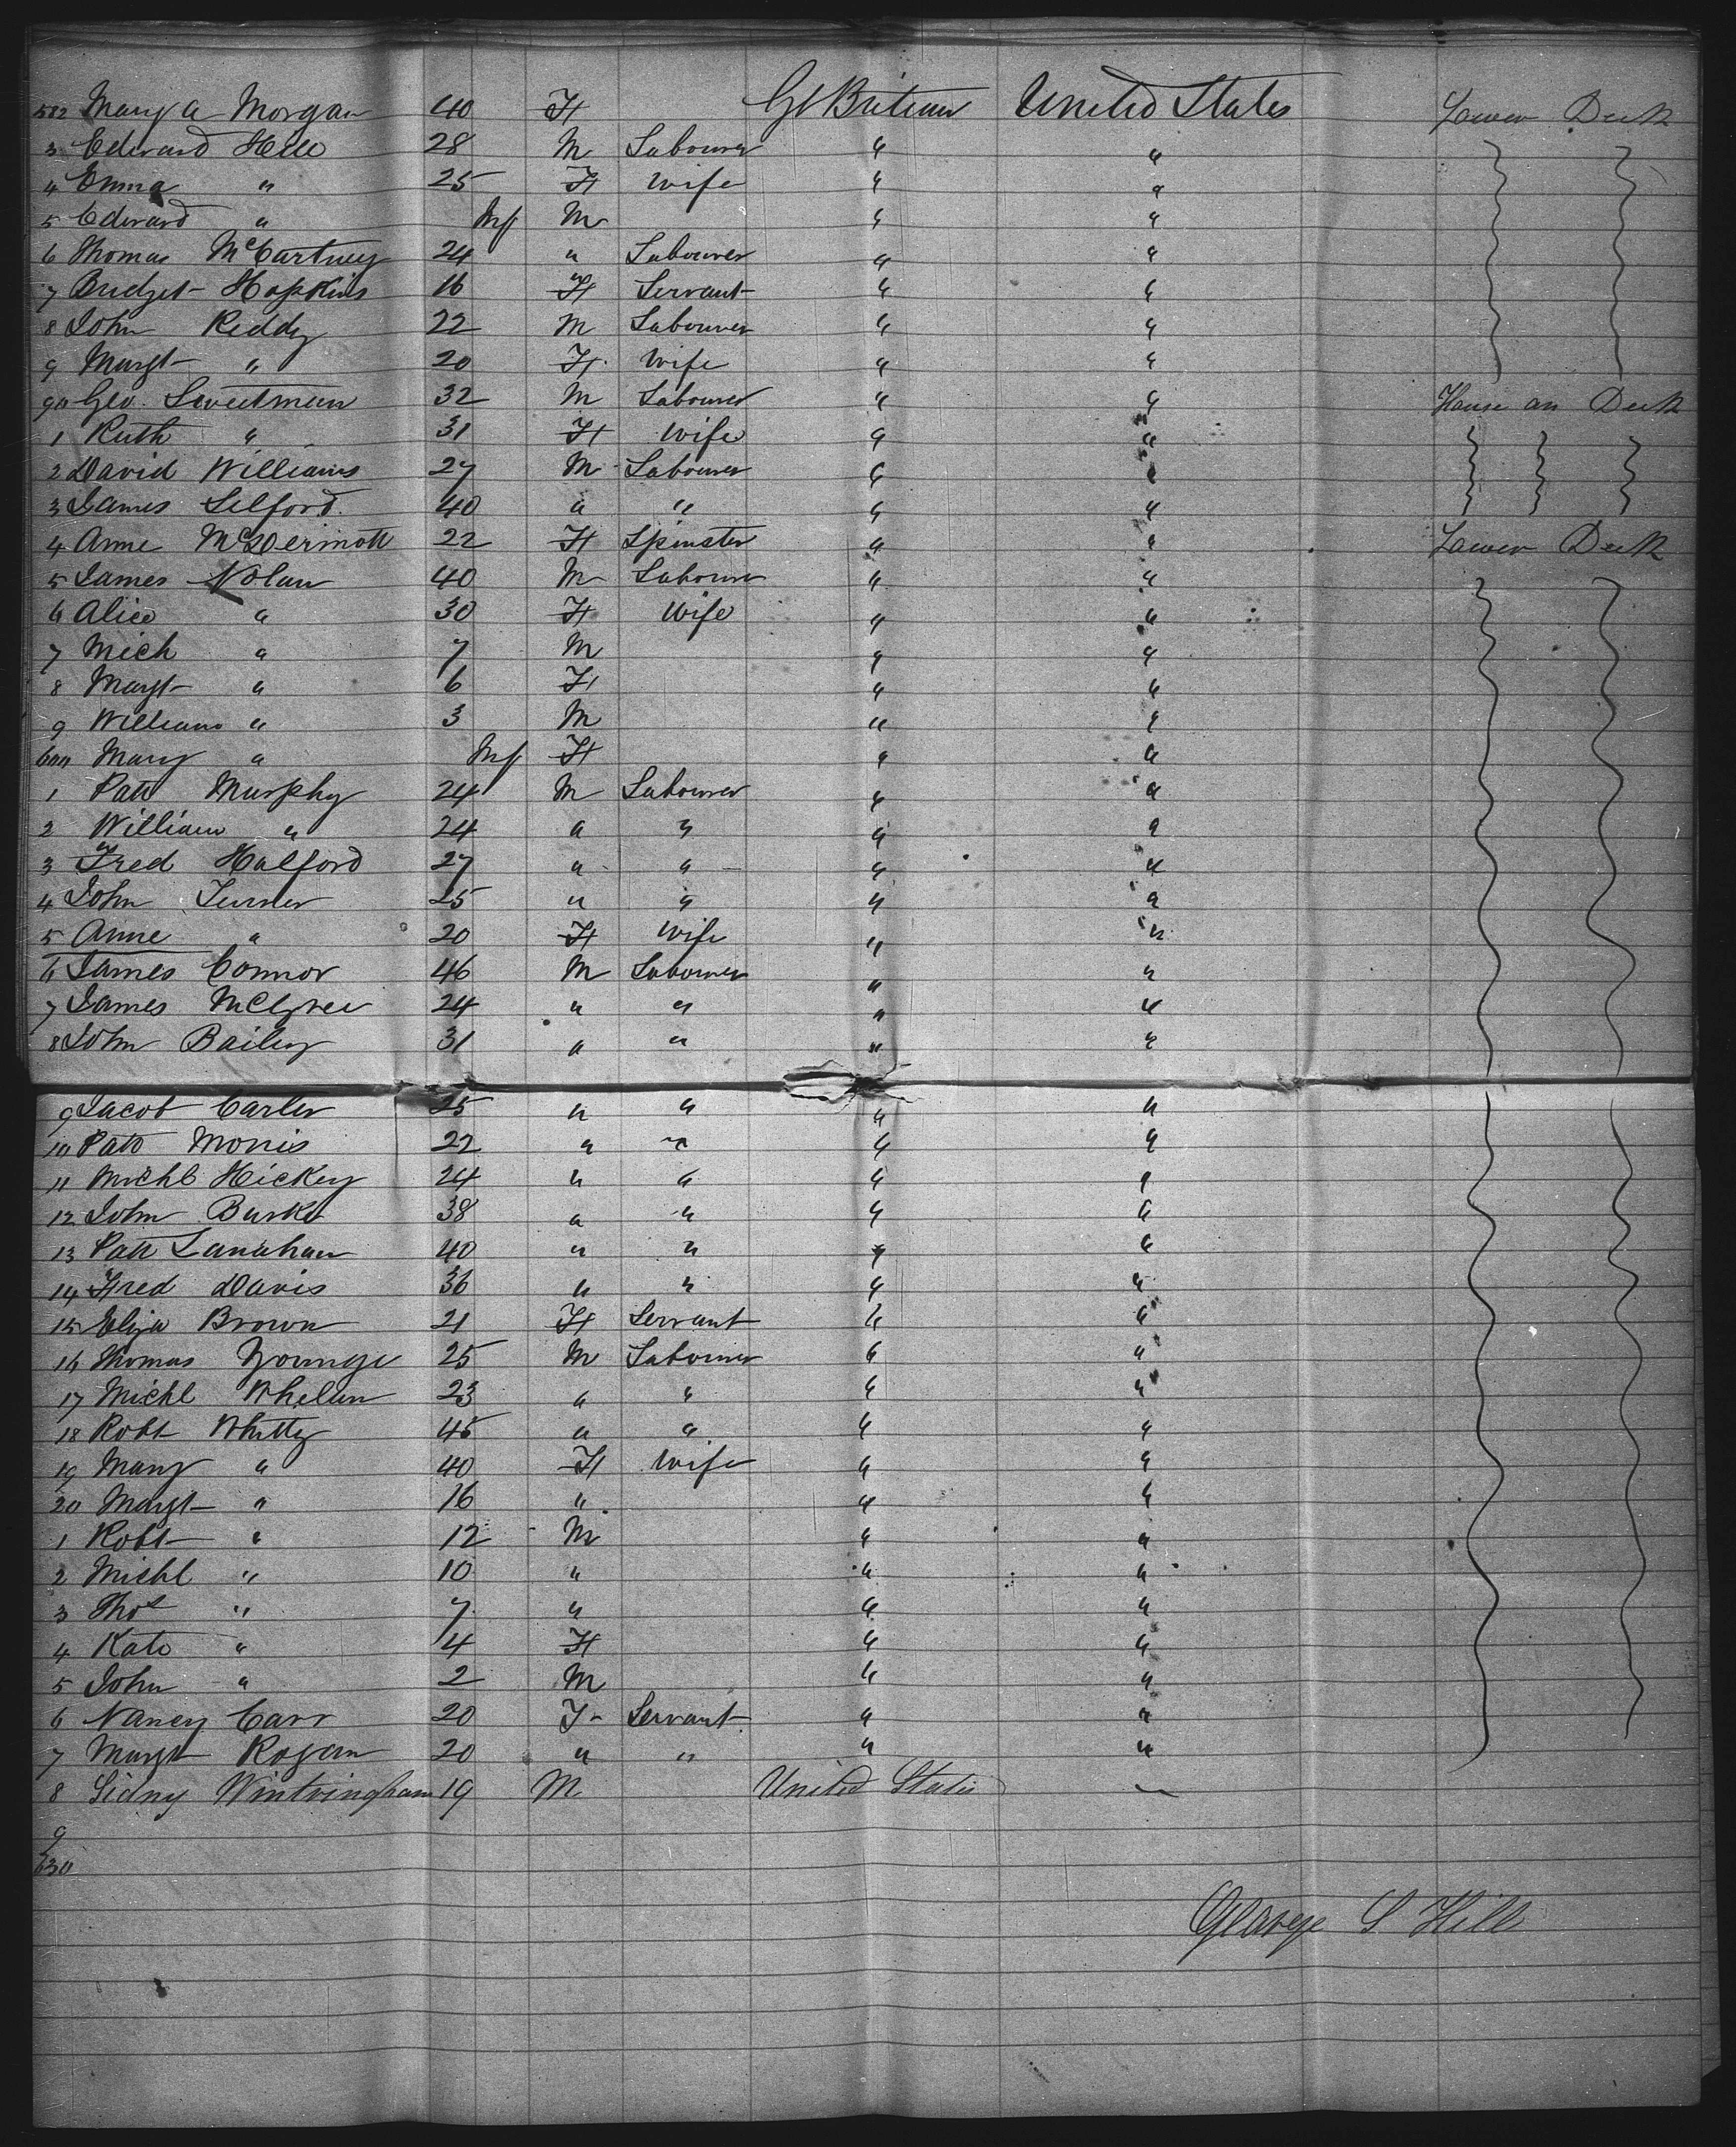 582 Mary A Morgan 40 F Gt Britain United States Lower Deck
3 Edward Hill 28 M Labourer " "
4 Emma " 25 F Wife " "
5 Edward " Inf M " "
6 Thomas McCartney 24 " Labourer " "
7 Bridget Hopkins 16 F Servant " "
8 John Reddy 22 M Labourer " "
9 Margt " 20 F Wife " "
90 Geo. Sweetman 32 M Labourer " " House on Deck
1 Ruth " 31 F Wife " "
2 David Williams 27 M Labourer " "
3 James Selford 40 " " " "
4 Anne McDermott 22 F Spinster " " Lower Deck
5 James Nolan 40 M Labourer " "
6 Alice " 30 F Wife " "
7 Mich " 7 M " "
8 Margt " 6 F " "
9 William " 3 M " "
600 Mary " Inf F " "
1 Patk Murphy 24 M Labourer " "
2 William " 24 " " " "
3 Fred Halford 27 " " " "
4 John Turner 25 " " " "
5 Anne " 20 F Wife " "
6 James Connor 46 M Labourer " "
7 James 24 " " " "
8 John Bailey 31 " " " "
9 Jacob Carler 25 " " " "
10 Patk Morris 22 " " " "
11 Michl Hickey 24 " " " "
12 John Burke 38 " " " "
13 Patk Lanahan 40 " " " "
14 Fred Davis 36 " " " "
15 Eliza Brown 21 F Servant " "
16 Thomas Younge 25 M Labourer " "
17 Michl Whelan 23 " " " "
18 Robt Whitty 45 " " " "
19 Mary " 40 F Wife " "
20 Margt " 16 " " "
1 Robt " 12 M " "
2 Michl " 10 " " "
3 Thos " 7 " " "
4 Kate " 4 F " "
5 John " 2 M " "
6 Nancy Carr 20 F Servant " "
7 Margt Rogan 20 " " " "
8 Sidny Wintringham 19 M United States —
9
630
George S Hill